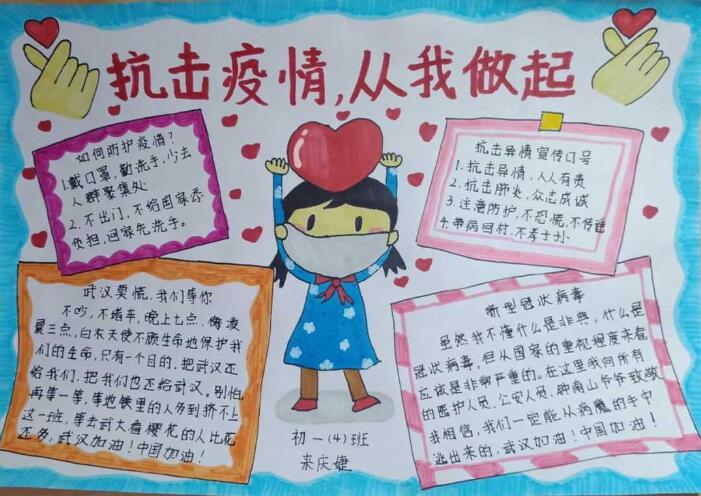 抗击疫情,从我做起
如何防护疫情?
1.戴口罩,勤洗手,少去
人群聚集处
2.不出门,不给国家添
负担,回家先洗手。
抗击异情宣传口号
1.抗击异情,人人有责
2.抗击肺炎,众志成诚
3.注意防护,不恐慌,不传谣
4.带病回村,不孝子孙
武汉莫慌,我们等你
不吵,不堵车,晚上七点,凌
晨三点,白衣天使不顾生命地保护我
们的生命,只有一个目的,把武汉还
给我们,把我们也还给武汉。别怕
再等一等,等地铁里的人多到挤不上
这一班,等去武大看樱花的人比花
还多,武汉加油!中国加油!
新型冠状病毒
虽然我不懂什么是非典,什么是
冠状病毒,但从国家的重视程度来看
应该是非常严重的。在这里我向所有
的医护人员,公安人员,钟南山爷爷致敬
我相信,我们一定能从病魔的手中
逃出来的,武汉加油!中国加油!
初一(4)班
来庆婕